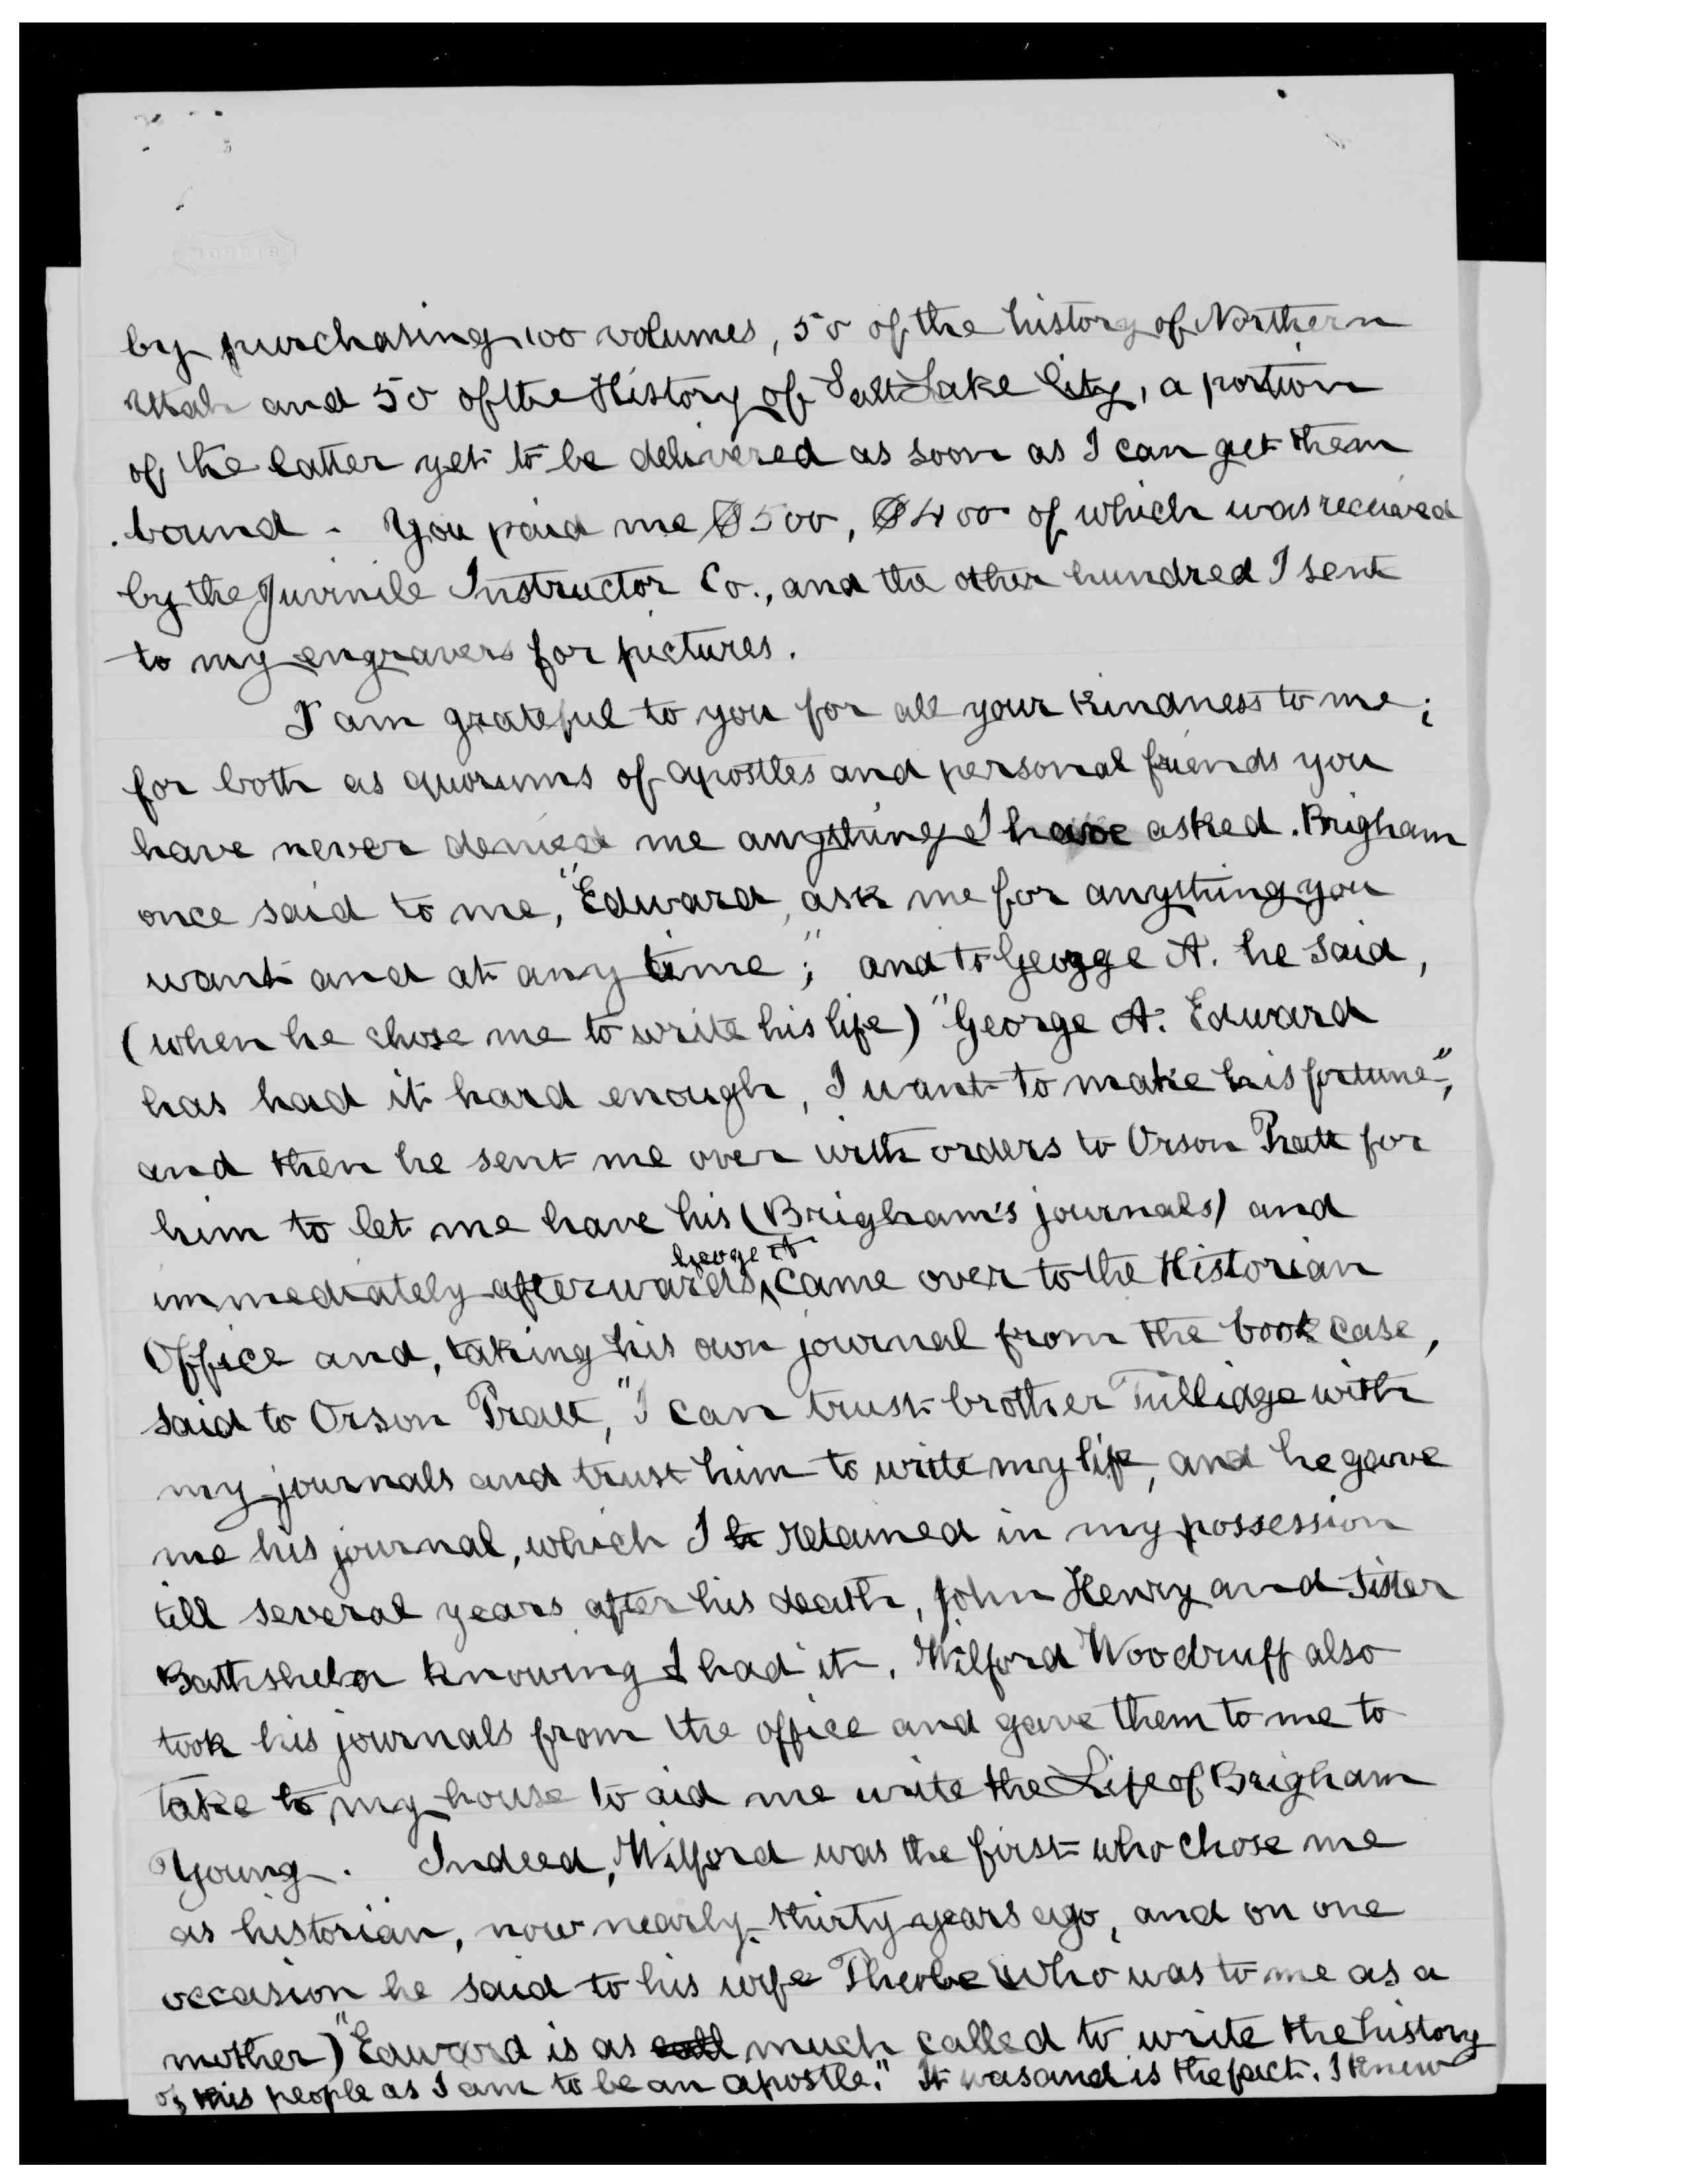 by purchasing 100 volumes, 50 of the history of Northern
Utah and 50 of the History of Salt Lake City, a portion
of the latter yet to be delivered as soon as I can get them
bound. You paid me $500, $400 of which was received
by the Juvinile Instructor Co., and the other hundred I sent
to my engravers for pictures.
I am grateful to you for all your kindness to me;
for both as quorums of apostles and personal friends you
have never denied me anything I have asked. Brigham
once said to me, "Edward, ask me for anything you
want and at any time;" and to George A. he said,
(when he chose me to write his life) "George A. Edward
has had it hard enough, I want to make his fortune",
and then he sent me over with orders to Orson Pratt for
him to let me have his (Brigham's journals) and
George A
immediately afterwards ^ came over to the Historian
Office and, taking his own journal from the book case,
said to Orson Pratt, "I can trust brother Tullidge with
my journals and trust him to write my life, and he gave
me his journal, which I retained in my possession
till several years after his death, John Henry and Sister
Bathsheba knowing I had it. Wilford Woodruff also
took his journals from the office and gave them to me to
take to my house to aid me write the Life of Brigham
Young. Indeed, Wilford was the first who chose me
as historian, now nearly thirty years ago, and on one
occasion he said to his wife Pheobe (who was to me as a
mother) "Edward is as call much called to write the history
of this people as I am to be an apostle." It was and is the fact. I knew